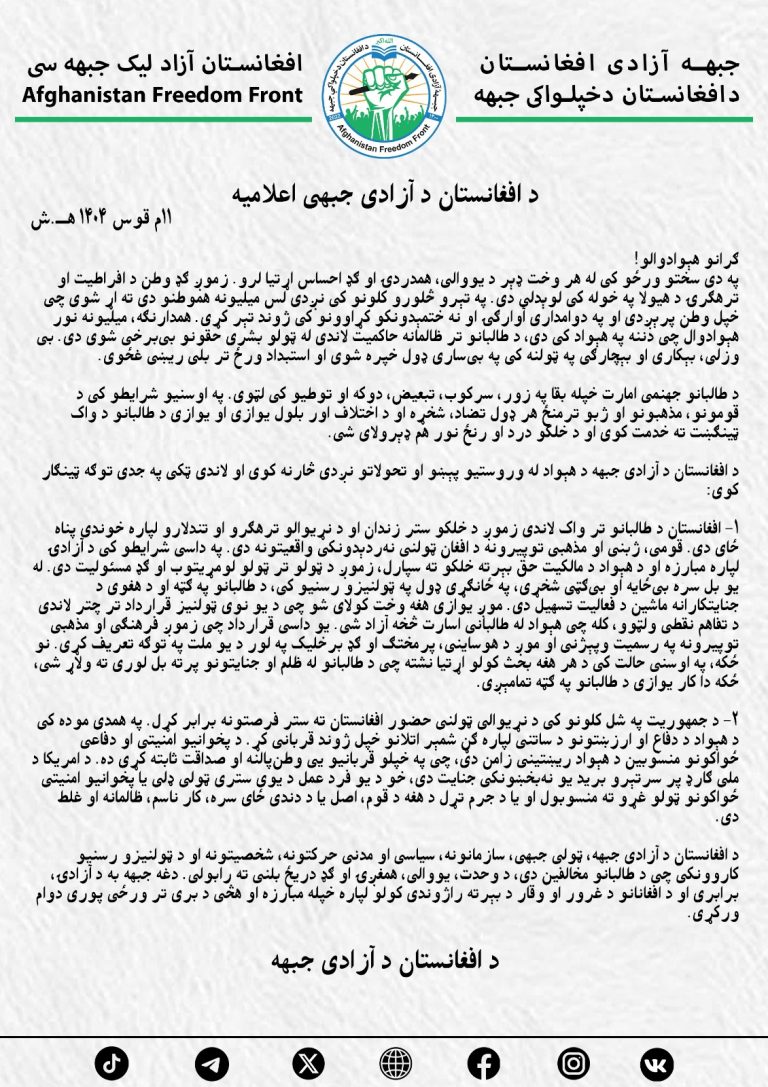 جبهـه آزادی افغانسـتان
دافغانسـتان دخپلـواکۍ جبهه
افغانسـتان آزاد لیک جبهه سی
Afghanistan Freedom Front
الله اکبر
جبهه آزادی افغانستان
د افغانستان دخپلواکۍ جبهه
Afghanistan Freedom Front
د افغانستان د آزادی جبهې اعلامیه
۱۱م قوس ۱۴۰۴ هـ.ش
ګرانو هېوادوالو!
په دې سختو ورځو کې له هر وخت ډېر د یووالي، همدردۍ او ګډ احساس اړتیا لرو. زموږ ګډ وطن د افراطیت او
ترهګرۍ د هیولا په خوله کې لوېدلی دی. په تېرو څلورو کلونو کې نږدې لس میلیونه هموطنو دې ته اړ شوي چې
خپل وطن پرېږدي او په دوامدارې آوارګۍ او نه ختمېدونکو کړاوونو کې ژوند تېر کړي. همدارنګه، میلیونه نور
هېوادوال چې دننه په هېواد کې دي، د طالبانو تر ظالمانه حاکمیت لاندې له ټولو بشري حقونو بې‌برخې شوي دي. بې
وزلي، بېکاري او بېچارګي په ټولنه کې په بې‌ساري ډول خپره شوې او استبداد ورځ تر بلې ریښې غځوي.
د طالبانو جهنمي امارت خپله بقا په زور، سرکوب، تبعیض، دوکه او توطیو کې لټوي. په اوسنیو شرایطو کې د
قومونو، مذهبونو او ژبو ترمنځ هر ډول تضاد، شخړه او د اختلاف اور بلول یوازې او یوازې د طالبانو د واک
ټینګښت ته خدمت کوي او د خلکو درد او رنځ نور هم ډېرولای شي.
د افغانستان د آزادۍ جبهه د هېواد له وروستیو پېښو او تحولاتو نږدې څارنه کوي او لاندې ټکي په جدي توګه ټینګار
کوي:
۱- افغانستان د طالبانو تر واک لاندې زموږ د خلکو ستر زندان او د نړیوالو ترهګرو او تندلارو لپاره خوندي پناه
ځای دی. قومي، ژبني او مذهبي توپیرونه د افغان ټولنې نه‌ردېدونکي واقعیتونه دي. په داسې شرایطو کې د آزادۍ
لپاره مبارزه او د هېواد د مالکیت حق بېرته خلکو ته سپارل، زموږ د ټولو تر ټولو لومړیتوب او ګډ مسئولیت دی. له
یو بل سره بې‌ځایه او بې‌ګټې شخړې، په ځانګړي ډول په ټولنیزو رسنیو کې، د طالبانو په ګټه او د هغوی د
جنایتکارانه ماشین د فعالیت تسهیل دی. موږ یوازې هغه وخت کولای شو چې د یو نوي ټولنیز قرارداد تر چتر لاندې
د تفاهم نقطې ولټوو، کله چې هېواد له طالبانې اسارت څخه آزاد شي. یو داسې قرارداد چې زموږ فرهنګي او مذهبي
توپیرونه په رسمیت وپېژني او موږ د هوساینې، پرمختګ او ګډ برخلیک په لور د یو ملت په توګه تعریف کړي. نو
ځکه، په اوسني حالت کې د هر هغه بحث کولو اړتیا نشته چې د طالبانو له ظلم او جنایتونو پرته بل لوري ته ولاړ شي،
ځکه دا کار یوازې د طالبانو په ګټه تمامېږي.
۲- د جمهوریت په شل کلونو کې د نړیوالې ټولنې حضور افغانستان ته ستر فرصتونه برابر کړل. په همدې موده کې
د هېواد د دفاع او ارزښتونو د ساتنې لپاره ګڼ شمېر اتلانو خپل ژوند قربانی کړ. د پخوانیو امنیتي او دفاعي
ځواکونو منسوبین د هېواد ریښتیني زامن دي، چې په خپلو قربانیو یې وطن‌پالنه او صداقت ثابته کړې ده. د امریکا د
ملي ګارډ پر سرتېرو برید یو نه‌بخښونکی جنایت دی، خو د یو فرد عمل د یوې سترې ټولې ډلې یا پخوانیو امنیتي
ځواکونو ټولو غړو ته منسوبول او یا د جرم تړل د هغه د قوم، اصل یا د دندې ځای سره، کار ناسم، ظالمانه او غلط
دی.
د افغانستان د آزادی جبهه، ټولې جبهې، سازمانونه، سیاسي او مدني حرکتونه، شخصیتونه او د ټولنیزو رسنیو
کاروونکي چې د طالبانو مخالفین دي، د وحدت، یووالي، همغږۍ او ګډ دریځ بلنې ته رابولي. دغه جبهه به د آزادۍ،
برابرۍ او د افغانانو د غرور او وقار د بېرته راژوندي کولو لپاره خپله مبارزه او هڅې د برۍ تر ورځې پورې دوام
ورکړي.
د افغانستان د آزادی جبهه